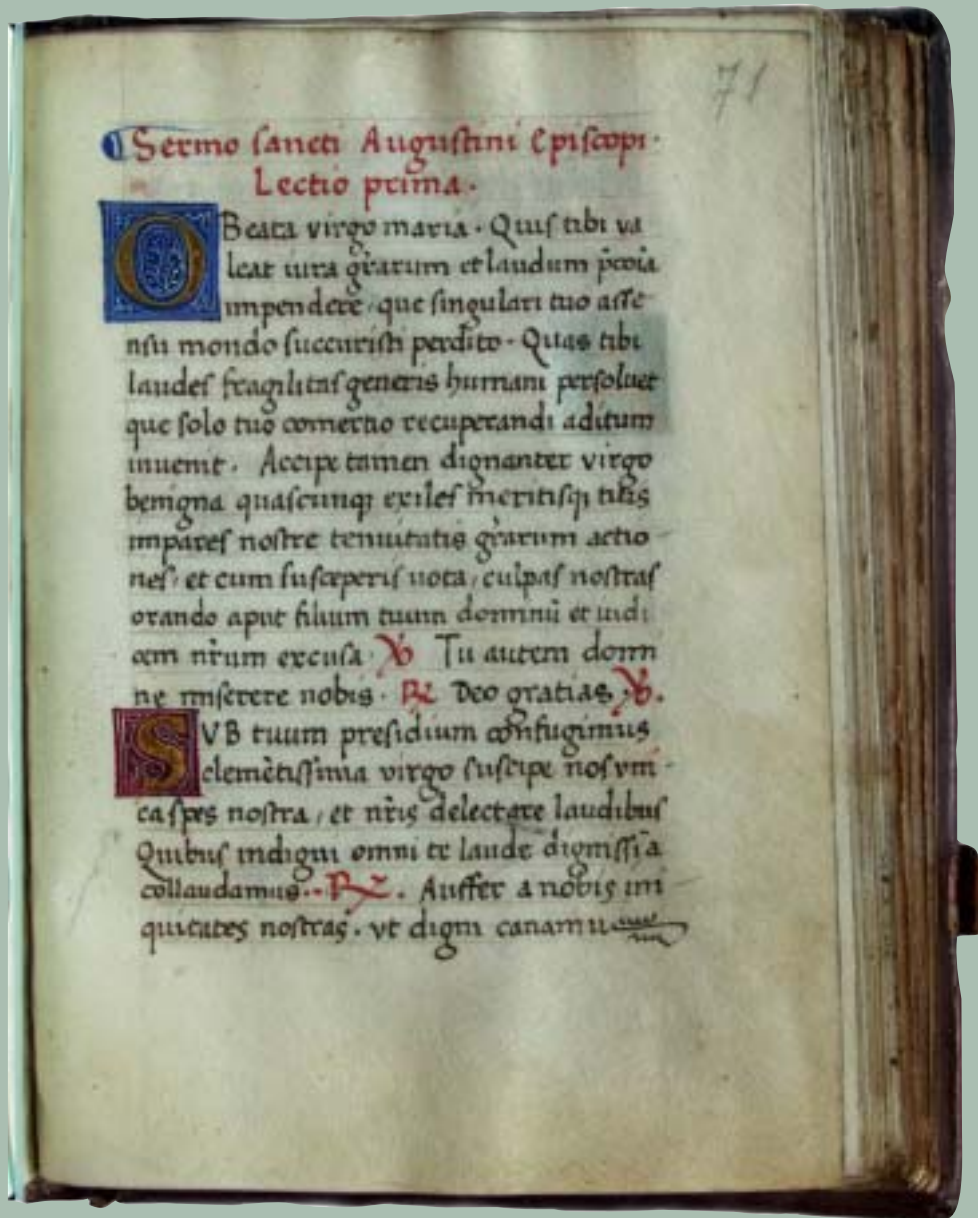 71
Sermo sancti Augustini Episcopi·
Lectio prima·
OBeata virgo maria· Quis tibi va
leat iura gr̄arum et laudum p̄coīa
impendere· que singulari tuo asse
nsu mondo succuristi perdito· Quas tibi
laudes fragilitas generis humani persoluet
que solo tuo comertio recuperandi aditum
inuenit· Accipe tamen dignanter virgo
benigna quascunqꝫ exiles meritisqꝫ tuis
impares nostre tenuitatis gr̄arum actio
nes· et cum susceperis uota, culpas nostras
orando aput filium tuum dominū et iudi
cem nr̄um excusa· ℣ Tu autem domi
ne miserere nobis· ℞ Deo gratias ℣.
SVB tuum presidium confugimus
clemētissima virgo suscipe nos vni
ca spes nostra, et nr̄is delectare laudibus
Quibus indigni omni te laude dignissīa
collaudamus·· ℞. Auffer a nobis ini
quitates nostras· vt digni canamus